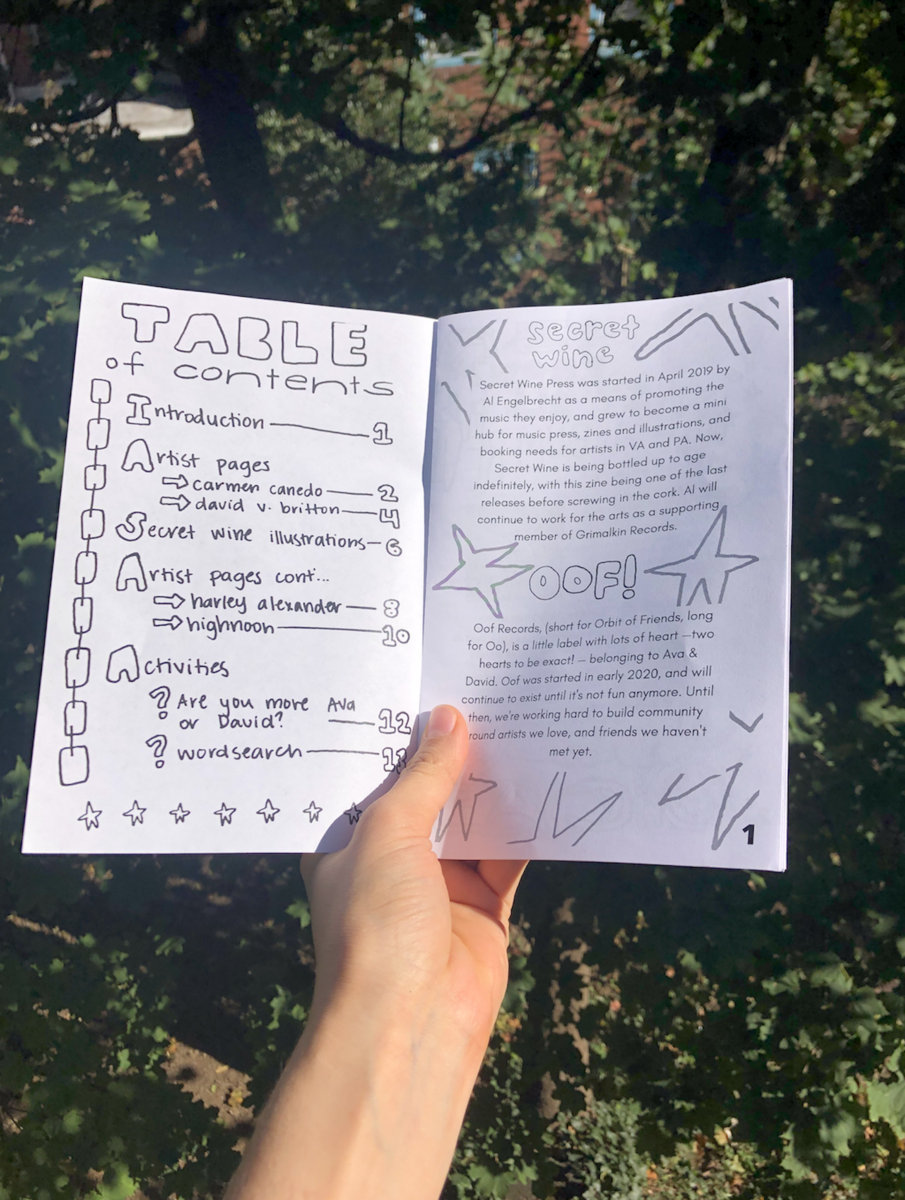 TABLE
of contents
Introduction 1
Artist pages
⇨ carmen canedo 2
⇨ david v. britton 4
Secret wine illustrations 6
Artist pages cont...
⇨ harley alexander 8
⇨ highnoon 10
Activities
? Are you more Ava
or David? 12
? wordsearch
secret
wine
Secret Wine Press was started in April 2019 by
Al Engelbrecht as a means of promoting the
music they enjoy, and grew to become a mini
hub for music press, zines and illustrations, and
booking needs for artists in VA and PA. Now,
Secret Wine is being bottled up to age
indefinitely, with this zine being one of the last
releases before screwing in the cork. Al will
continue to work for the arts as a supporting
member of Grimalkin Records.
OOF!
Oof Records, (short for Orbit of Friends, long
for Oo), is a little label with lots of heart —two
hearts to be exact! — belonging to Ava &
David. Oof was started in early 2020, and will
continue to exist until it's not fun anymore. Until
then, we're working hard to build community
round artists we love, and friends we haven't
met yet.
1